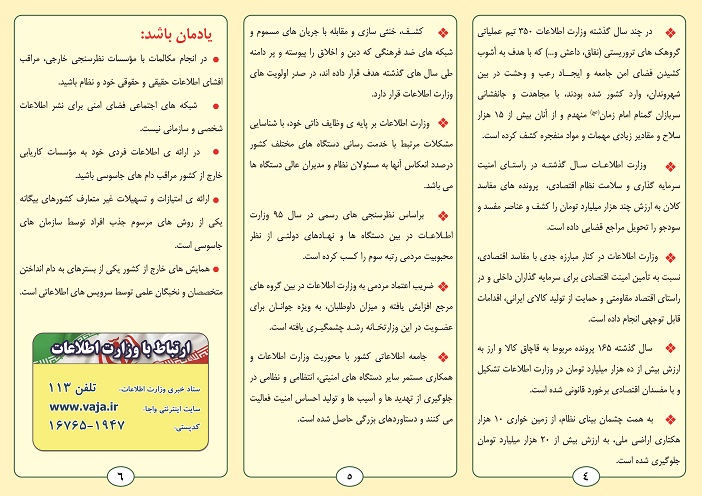 در چند سال گذشته وزارت اطلاعات ۳۵۰ تیم عملیاتی
گروهک های تروریستی (نفاق، داعش و...) که با هدف به آشوب
کشیدن فضای امن جامعه و ایجاد رعب و وحشت در بین
شهروندان، وارد کشور شده بودند، با مجاهدت و جانفشانی
سربازان گمنام امام زمان(عج) منهدم و از آنان بیش از ۱۵ هزار
سلاح و مقادیر زیادی مهمات و مواد منفجره کشف کرده است.
وزارت اطلاعات سال گذشته در راستای امنیت
سرمایه گذاری و سلامت نظام اقتصادی، پرونده های مفاسد
کلان به ارزش چند هزار میلیارد تومان را کشف و عناصر مفسد و
سودجو را تحویل مراجع قضایی داده است.
وزارت اطلاعات در کنار مبارزه جدی با مفاسد اقتصادی،
نسبت به تأمین امینت اقتصادی برای سرمایه گذاران داخلی و در
راستای اقتصاد مقاومتی و حمایت از تولید کالای ایرانی، اقدامات
قابل توجهی انجام داده است.
سال گذشته ۱۶۵ پرونده مربوط به قاچاق کالا و ارز به
ارزش بیش از ده هزار میلیارد تومان در وزارت اطلاعات تشکیل
و با مفسدان اقتصادی برخورد قانونی شده است.
به همت چشمان بینای نظام، از زمین خواری ۱۰ هزار
هکتاری اراضی ملی، به ارزش بیش از ۲۰ هزار میلیارد تومان
جلوگیری شده است.
۴
کشف، خنثی سازی و مقابله با جریان های مسموم و
شبکه های ضد فرهنگی که دین و اخلاق را پیوسته و پر دامنه
طی سال های گذشته هدف قرار داده اند، در صدر اولویت های
وزارت اطلاعات قرار دارد.
وزارت اطلاعات بر پایه ی وظایف ذاتی خود، با شناسایی
مشکلات مرتبط با خدمت رسانی دستگاه های مختلف کشور
درصدد انعکاس آنها به مسئولان نظام و مدیران عالی دستگاه ها
می باشد.
براساس نظرسنجی های رسمی در سال ۹۵ وزارت
اطلاعات در بین دستگاه ها و نهادهای دولتی از نظر
محبوبیت مردمی رتبه سوم را کسب کرده است.
ضریب اعتماد مردمی به وزارت اطلاعات در بین گروه های
مرجع افزایش یافته و میزان داوطلبان، به ویژه جوانان برای
عضویت در این وزارتخانه رشد چشمگیری یافته است.
جامعه اطلاعاتی کشور با محوریت وزارت اطلاعات و
همکاری مستمر سایر دستگاه های امنیتی، انتظامی و نظامی در
جلوگیری از تهدید ها و آسیب ها و تولید احساس امنیت فعالیت
می کنند و دستاوردهای بزرگی حاصل شده است.
۵
یادمان باشد:
در انجام مکالمات با مؤسسات نظرسنجی خارجی، مراقب
افشای اطلاعات حقیقی و حقوقی خود و نظام باشید.
شبکه های اجتماعی فضای امنی برای نشر اطلاعات
شخصی و سازمانی نیست.
در ارائه ی اطلاعات فردی خود به مؤسسات کاریابی
خارج از کشور مراقب دام های جاسوسی باشید.
ارائه ی امتیازات و تسهیلات غیر متعارف کشورهای بیگانه
یکی از روش های مرسوم جذب افراد توسط سازمان های
جاسوسی است.
همایش های خارج از کشور یکی از بسترهای به دام انداختن
متخصصان و نخبگان علمی توسط سرویس های اطلاعاتی است.
ارتباط با وزارت اطلاعات
ستاد خبری وزارت اطلاعات: تلفن ۱۱۳
سایت اینترنتی واجا: www.vaja.ir
کدپستی: ۱۶۷۶۵-۱۹۴۷
۶